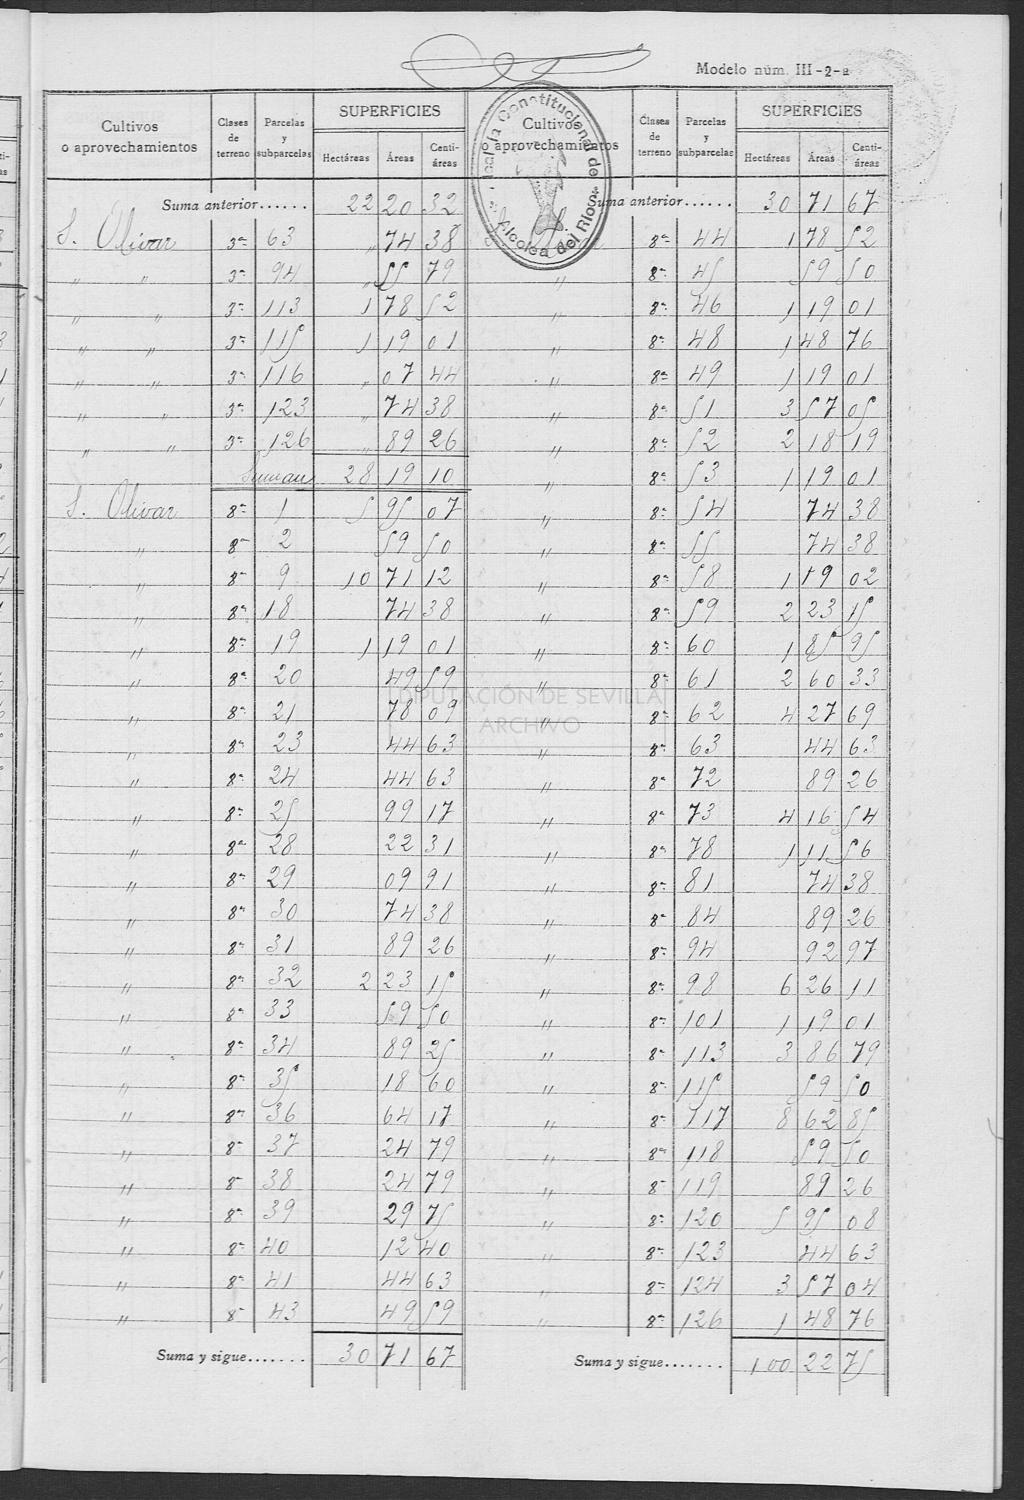 Modelo núm. III-2-a
Cultivos o aprovechamientos | Clases de terreno | Parcelas y subparcelas | SUPERFICIES Hectáreas Áreas Centiáreas
Suma anterior...... 22 20 32
S. Olivar 3ª 63 " 74 38
" " 3ª 94 " 55 79
" " 3ª 113 1 78 52
" " 3ª 115 1 19 01
" " 3ª 116 " 07 44
" " 3ª 123 " 74 38
" " 3ª 126 " 89 26
Suman 28 19 10
S. Olivar 8ª 1 5 95 07
" 8ª 2 59 50
" 8ª 9 10 71 12
" 8ª 18 74 38
" 8ª 19 1 19 01
" 8ª 20 49 59
" 8ª 21 78 09
" 8ª 23 44 63
" 8ª 24 44 63
" 8ª 25 99 17
" 8ª 28 22 31
" 8ª 29 09 91
" 8ª 30 74 38
" 8ª 31 89 26
" 8ª 32 2 23 15
" 8ª 33 59 50
" 8ª 34 89 25
" 8ª 35 18 60
" 8ª 36 64 17
" 8ª 37 24 79
" 8ª 38 24 79
" 8ª 39 29 75
" 8ª 40 12 40
" 8ª 41 44 63
" 8ª 43 49 59
Suma y sigue....... 30 71 67
Cultivos o aprovechamientos | Clases de terreno | Parcelas y subparcelas | SUPERFICIES Hectáreas Áreas Centiáreas
Alcaldía Constitucional de Alcolea del Río
Suma anterior...... 30 71 67
8ª 44 1 78 52
" 8ª 45 59 50
" 8ª 46 1 19 01
" 8ª 48 1 48 76
" 8ª 49 1 19 01
" 8ª 51 3 57 05
" 8ª 52 2 18 19
" 8ª 53 1 19 01
" 8ª 54 74 38
" 8ª 55 74 38
" 8ª 58 1 19 02
" 8ª 59 2 23 15
" 8ª 60 1 85 95
" 8ª 61 2 60 33
" 8ª 62 4 27 69
" 8ª 63 44 63
" 8ª 72 89 26
" 8ª 73 4 16 54
" 8ª 78 1 11 56
" 8ª 81 74 38
" 8ª 84 89 26
" 8ª 94 92 97
" 8ª 98 6 26 11
" 8ª 101 1 19 01
" 8ª 113 3 86 79
" 8ª 115 59 50
" 8ª 117 8 62 85
" 8ª 118 59 50
" 8ª 119 89 26
" 8ª 120 5 95 08
" 8ª 123 44 63
" 8ª 124 3 57 04
" 8ª 126 1 48 76
Suma y sigue....... 100 22 75
DIPUTACIÓN DE SEVILLA
ARCHIVO